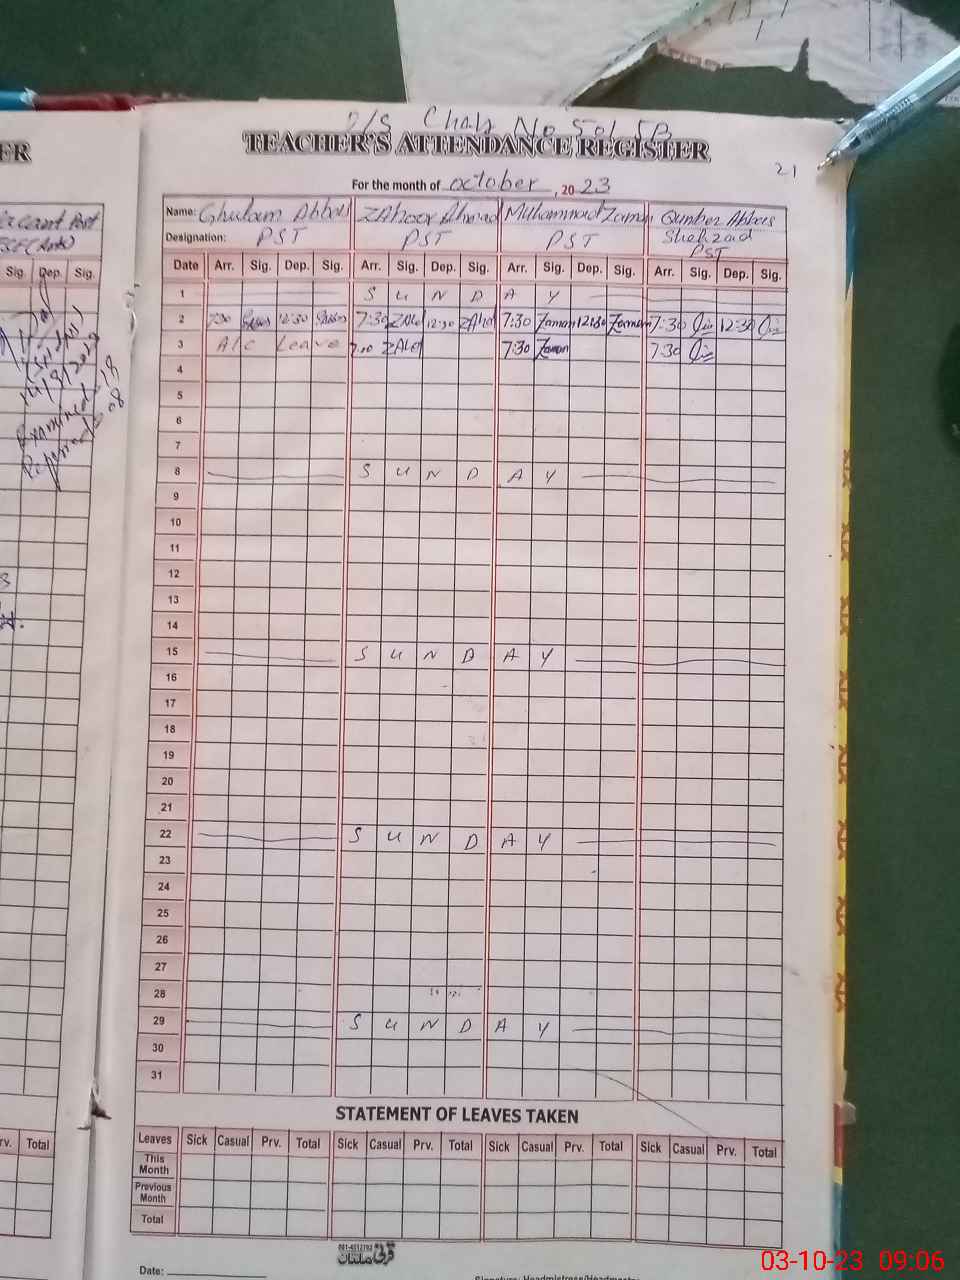 P/S Chak No 501 EB
TEACHER'S ATTENDANCE REGISTER
21
For the month of October, 2023
Name: Ghulam Abbas Zahoor Ahmad Muhammad Zaman Qunber Abbas
Designation: PST PST PST Shehzad
PST
Date Arr. Sig. Dep. Sig. Arr. Sig. Dep. Sig. Arr. Sig. Dep. Sig. Arr. Sig. Dep. Sig.
1 S U N D A Y
2 7:30 12:30 7:30 12:30 7:30 Zaman 12:30 Zaman 7:30 12:30
3 A/C Leave 7:30 Zaman 7:30
4
5
6
7
8 S U N D A Y
9
10
11
12
13
14
15 S U N D A Y
16
17
18
19
20
21
22 S U N D A Y
23
24
25
26
27
28
29 S U N D A Y
30
31
STATEMENT OF LEAVES TAKEN
Leaves Sick Casual Prv. Total Sick Casual Prv. Total Sick Casual Prv. Total Sick Casual Prv. Total
This
Month
Previous
Month
Total
Date:
ER
Sig. Dep. Sig.
Total
03-10-23 09:06